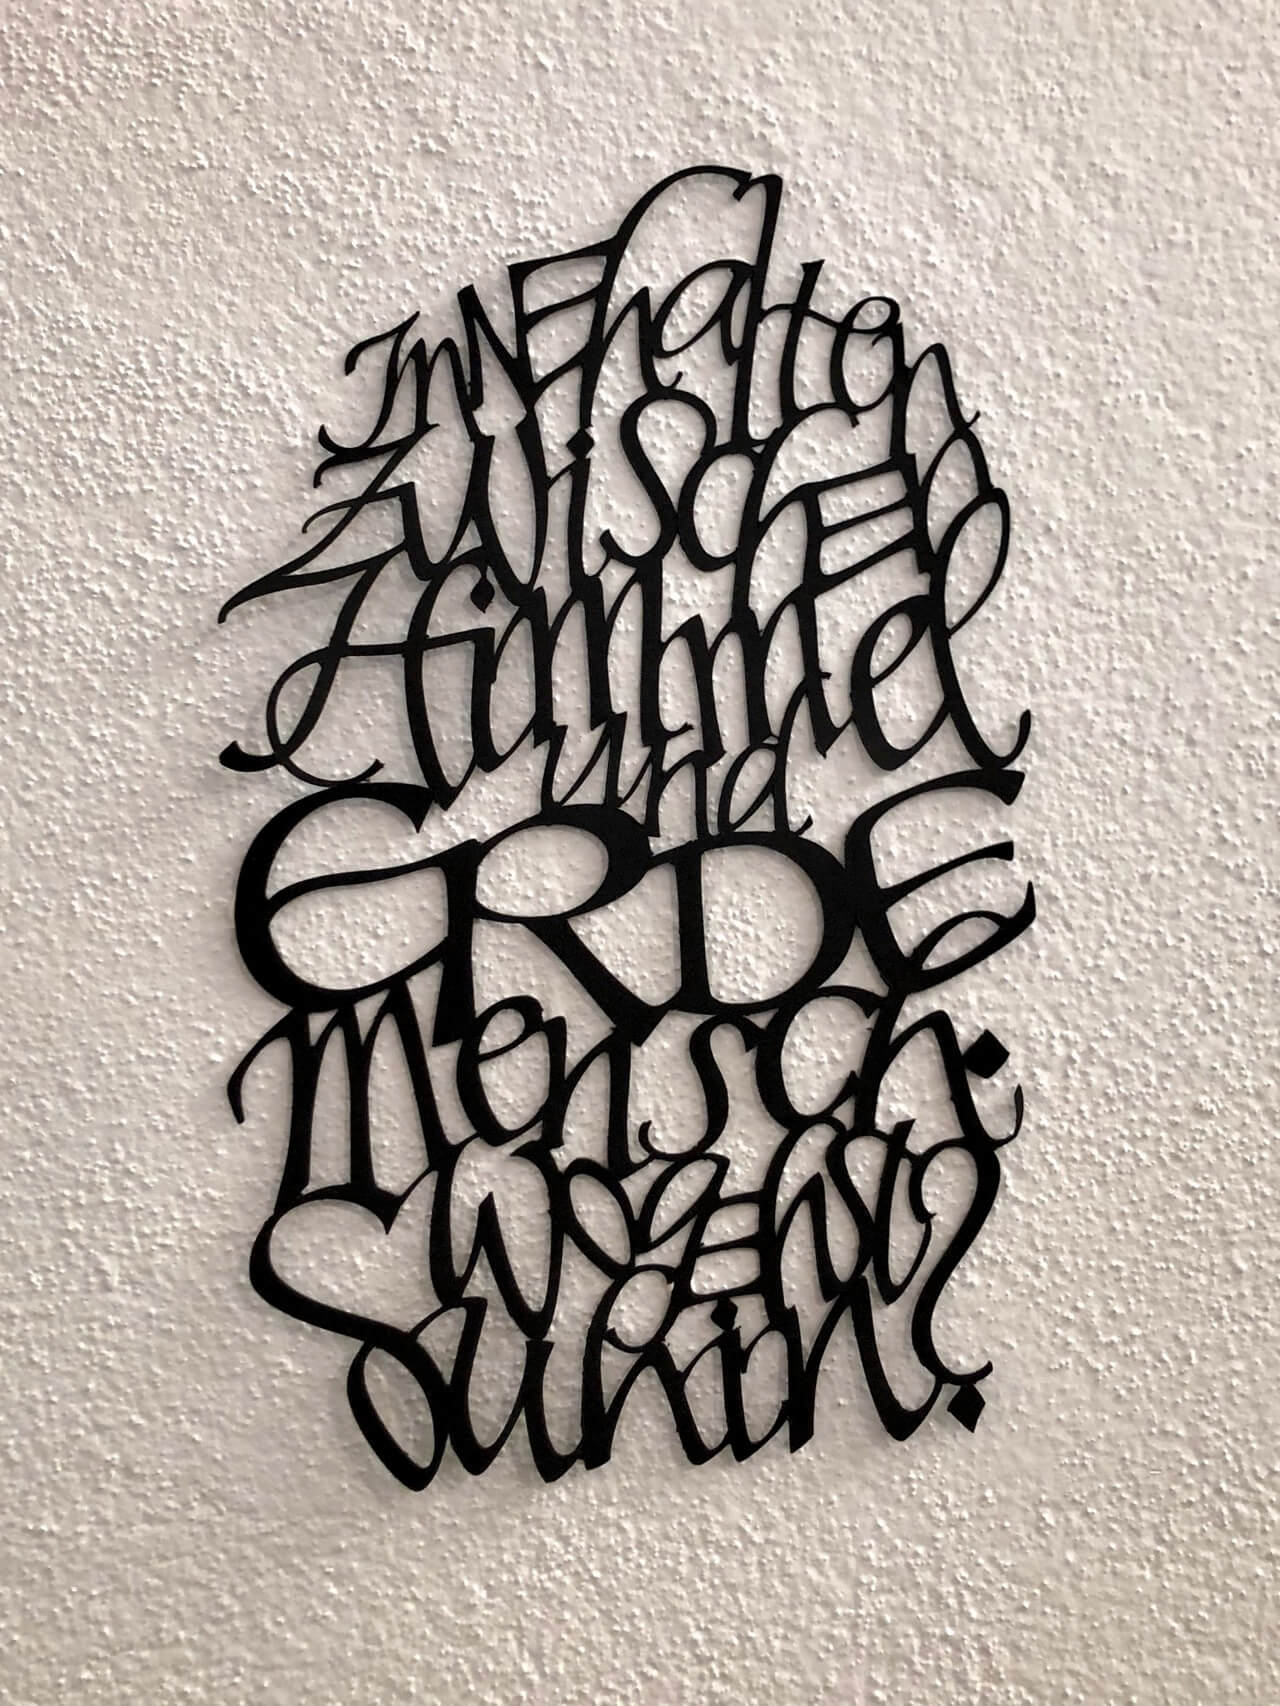 InNEhalten
ZWiSCHEn
Himmel
und
ERDE
Mensch:
Wo gEhst
Du hin?